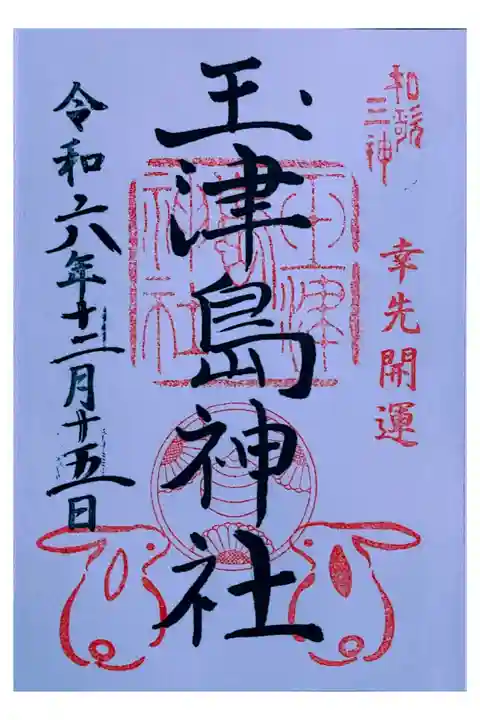 和歌
三神
幸先開運
玉津島神社
玉津
島神社
令和六年十二月十五日